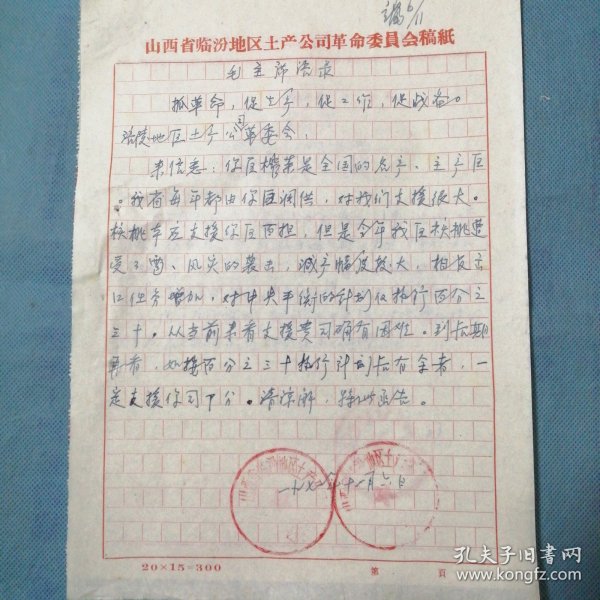 山西省临汾地区土产公司革命委員会稿紙
毛主席语录
抓革命，促生产，促工作，促战备。
涪陵地区土产公司革委会：
来信悉：你区榨菜是全国的名产、主产区
。我省每年都由你区调供，对我们支援很大。
核桃本应支援你区百担，但是今年我区核桃遭
受了雹、风灾的袭击，减产幅度较大，相反出
口任务增加，对中央平衡的计划仅执行百分之
三十。从当前来看支援贵司确有困难。到后期
再看，如按百分之三十执行计划后有余者，一
定支援你司部分。请谅解，特此函告。
一九七二年十一月六日
20×15=300
第 頁
孔夫子旧书网
www.kongfz.com